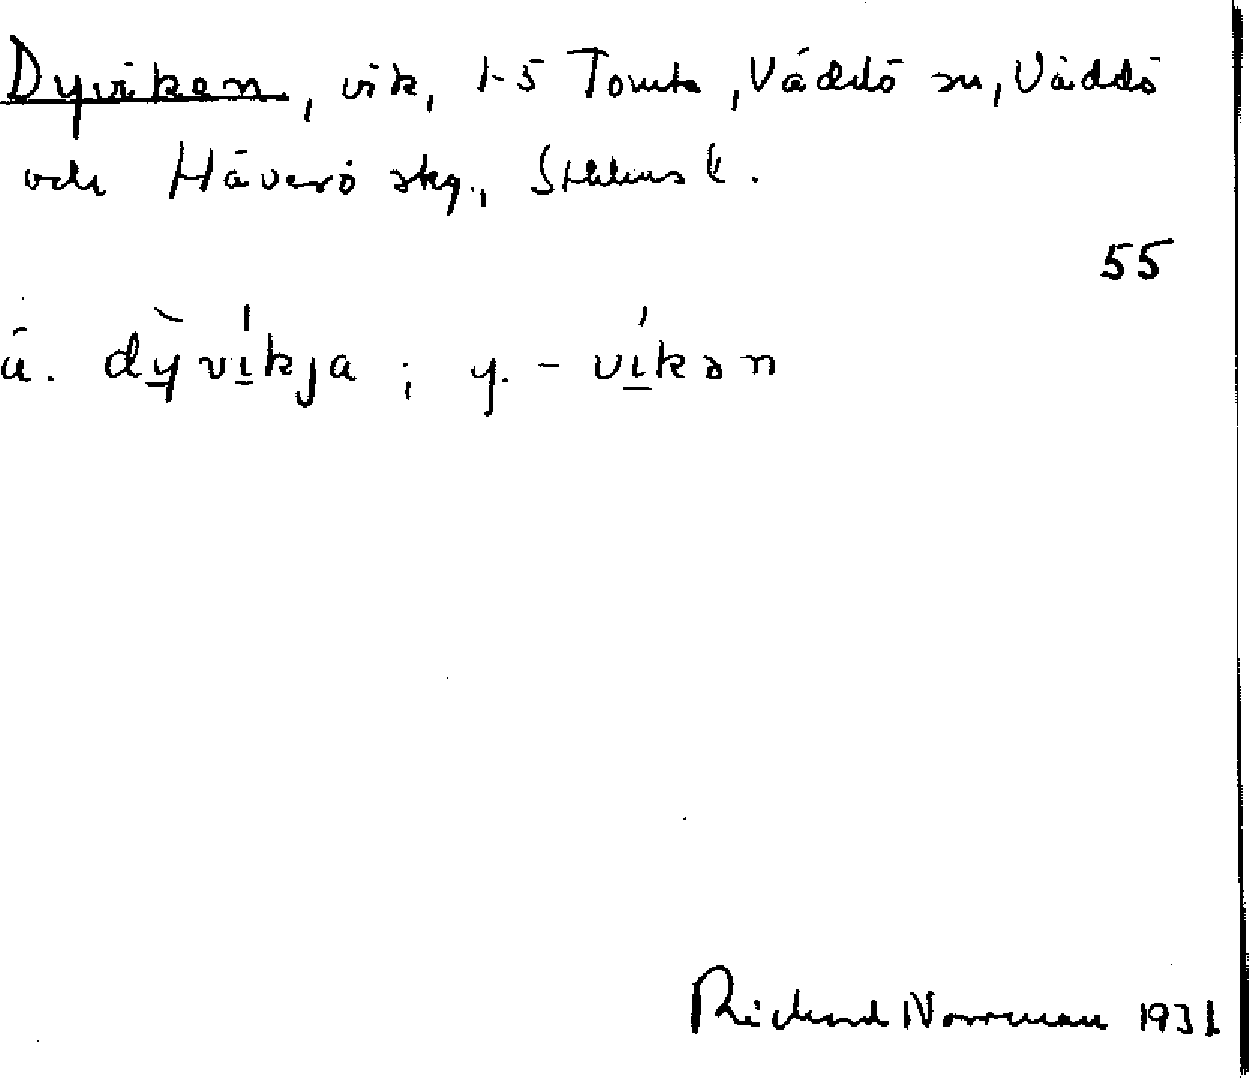 Dyviken, vik, 1-5 Tomta, Väddö sn, Väddö
och Häverö skg., Sthlms l.
55
ä. dỳ̱ví̱kja; y. -ví̱kən
Richard Norrman 1931